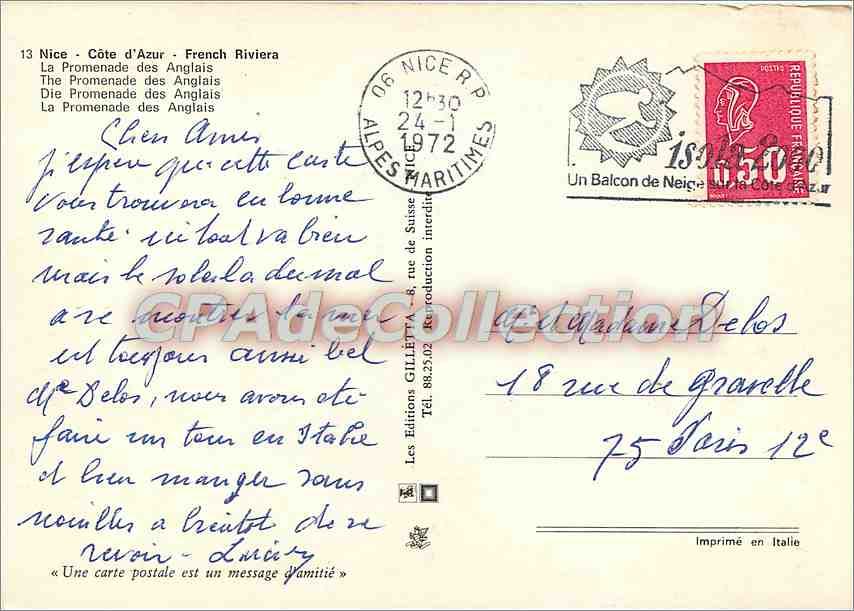 13 Nice - Côte d'Azur - French Riviera
La Promenade des Anglais
The Promenade des Anglais
Die Promenade des Anglais
La Promenade des Anglais
06 NICE R.P.
12h30
24 -1
1972
ALPES MARITIMES
isola 2000
Un Balcon de Neige sur la Côte d'Azur
POSTES
REPUBLIQUE FRANÇAISE
0,50
Chers Amis
J'espère que cette carte
vous trouvera en bonne
santé. ici tout va bien
mais le soleil a du mal
a se montrer la mer
est toujours aussi bel
Mr Delos, nous avons été
faire un tour en Italie
et bien manger sans
nouilles a bientôt de se
revoir -
« Une carte postale est un message d'amitié »
Les Editions GILLETTA - 8, rue de Suisse - NICE
Tél. 88.25.02 Reproduction interdite
CPAdeCollection
Mr et Madame Delos
18 rue de gravelle
75 Paris 12e
Imprimé en Italie